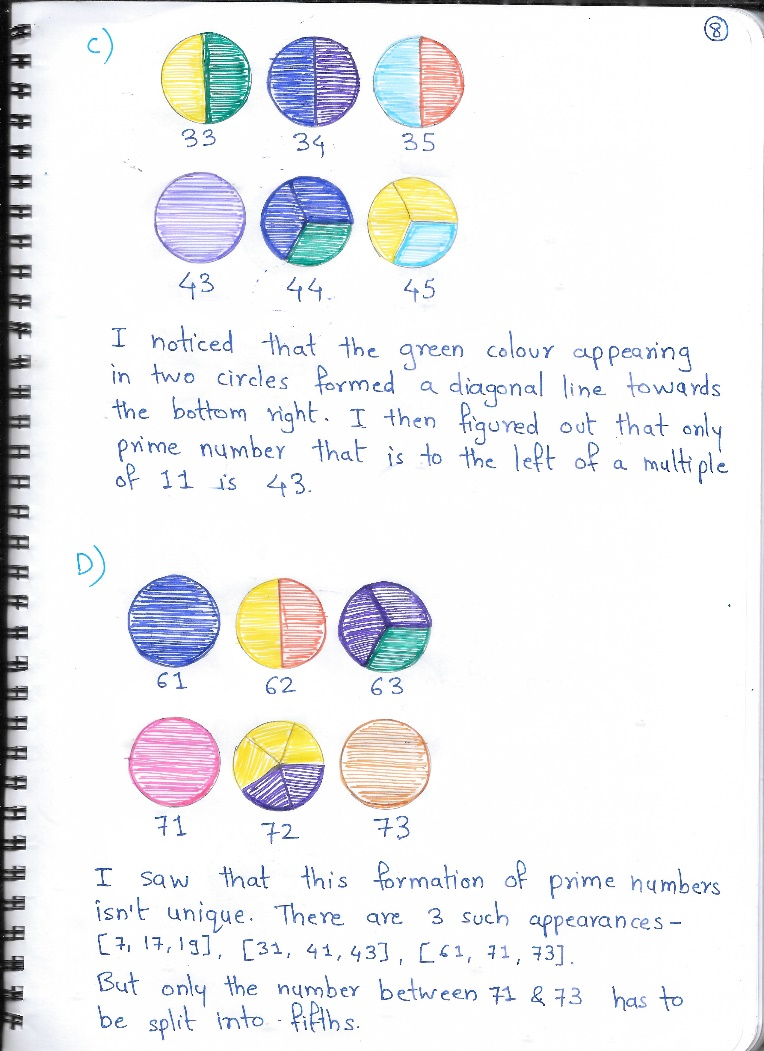 8
C)
33 34 35
43 44 45
I noticed that the green colour appearing
in two circles formed a diagonal line towards
the bottom right. I then figured out that only
prime number that is to the left of a multiple
of 11 is 43.
D)
61 62 63
71 72 73
I saw that this formation of prime numbers
isn't unique. There are 3 such appearances -
[7, 17, 19], [31, 41, 43], [61, 71, 73].
But only the number between 71 & 73 has to
be split into fifths.